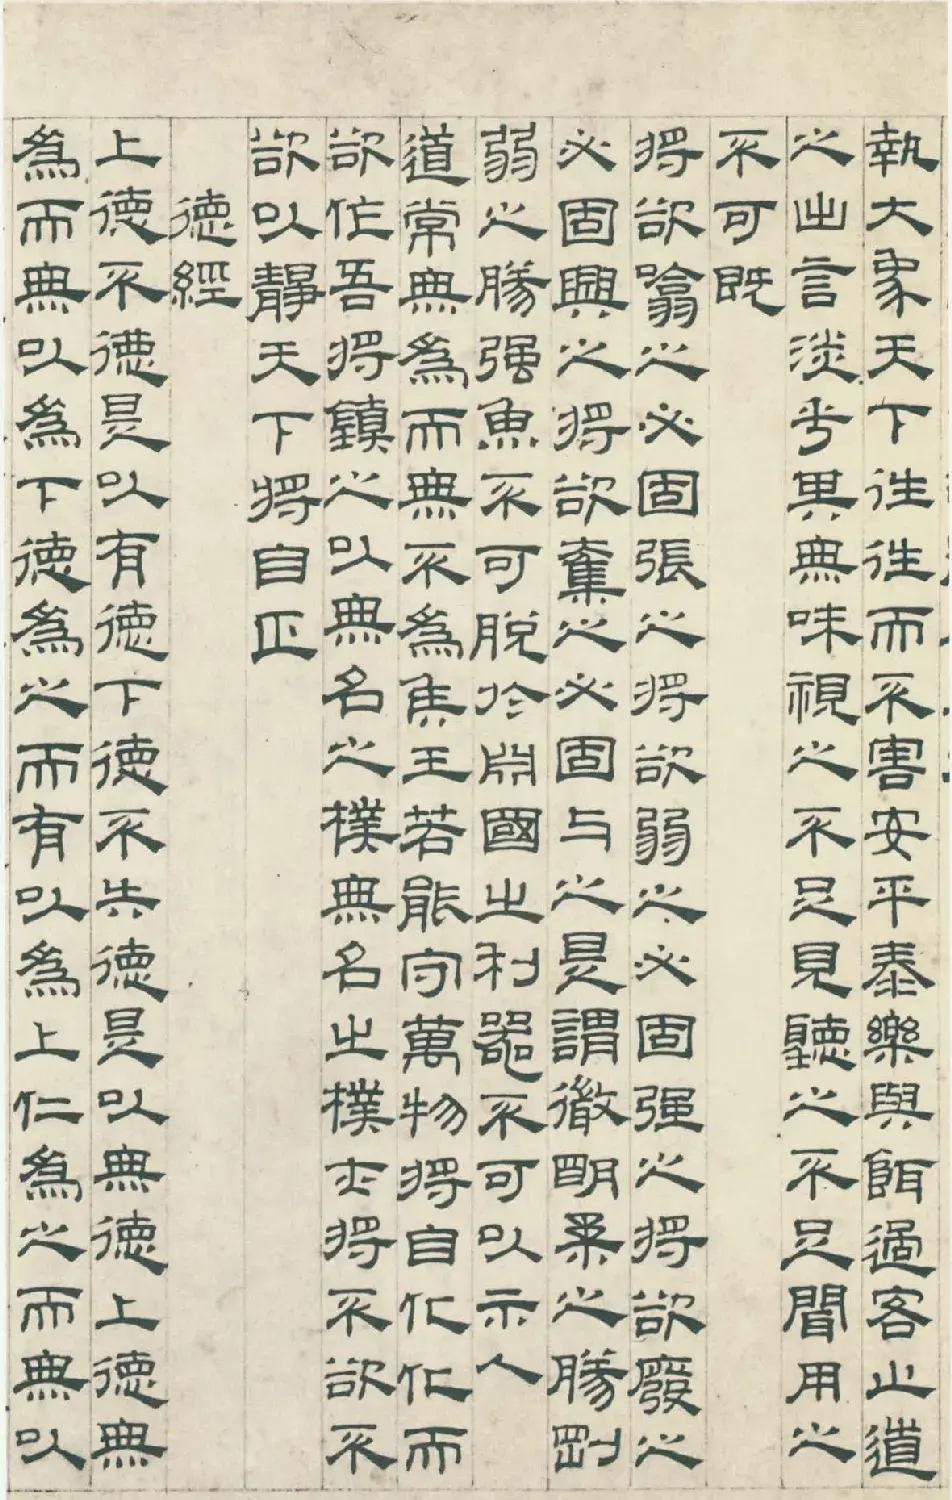 執大象天下往往而不害安平泰樂與餌過客止道
之出言淡乎其無味視之不足見聽之不足聞用之
不可既
將欲噏之必固張之將欲弱之必固强之將欲廢之
必固興之將欲奪之必固与之是謂微明柔之勝剛
弱之勝强魚不可脫於淵國之利器不可以示人
道常無為而無不為侯王若能守萬物將自化化而
欲作吾將鎮之以無名之樸無名之樸亦將不欲不
欲以靜天下將自正
德經
上德不德是以有德下德不失德是以無德上德無
為而無以為下德為之而有以為上仁為之而無以